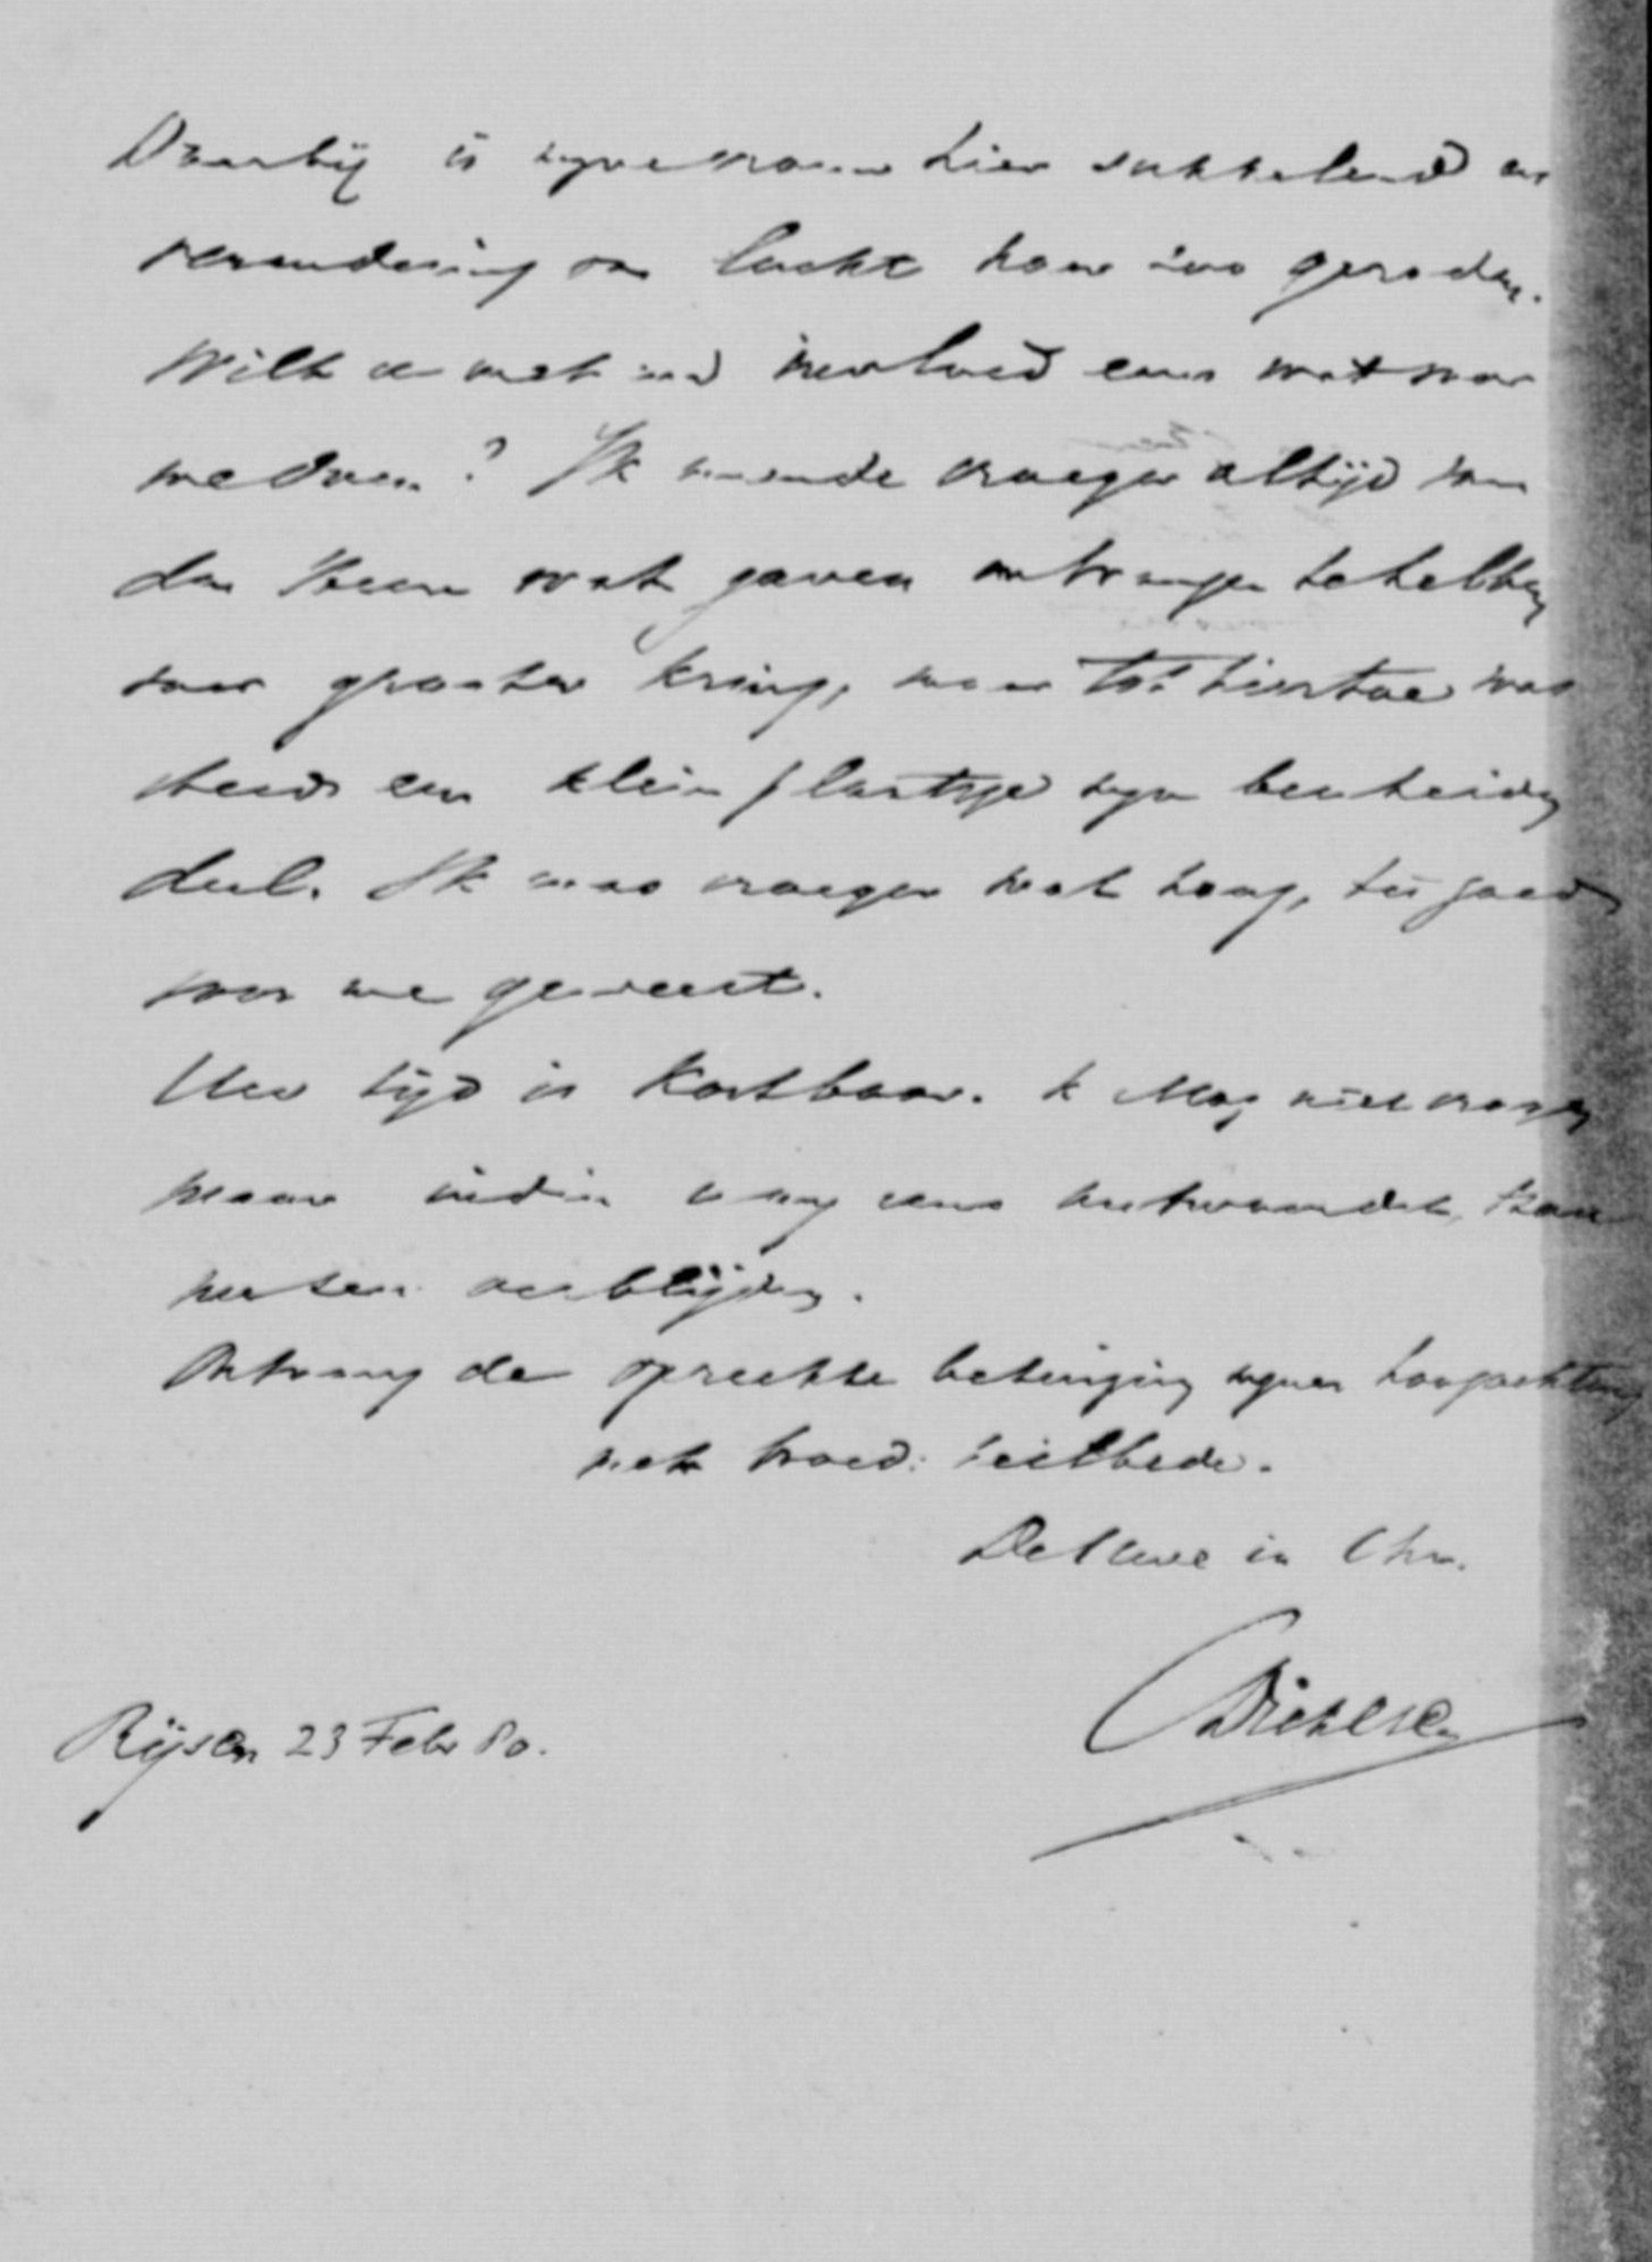 Daarbij is mijne vrouw hier sukkelend en
verandering van lucht haar zoo geraden.
Wilt u met uw invloed eens wat voor
me doen? Ik meende vroeger altijd van
den Heere wat gaven ontvangen te hebben
voor grooter kring, maar tot hiertoe was
steeds een klein plaatsje mijn bescheiden
deel. Ik was vroeger wat hoog, 't is goed
voor me geweest.
Uw tijd is kostbaar. k Mag niet vragen
maar indien u mij eens antwoordde, zou
verblijden.
Ontvang de oprechte betuiging mijner hoogachting
met broed: heilbede.
in Chr.
Rijsen 23 Febr 80.